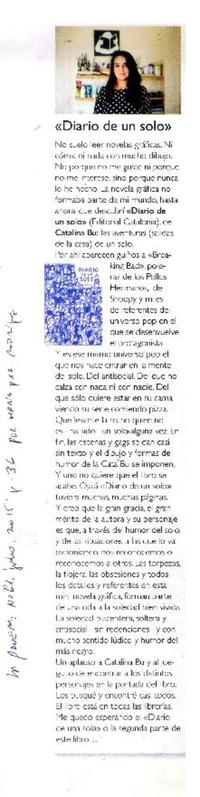 «Diario de un solo»
No suelo leer novelas gráficas. Ni
cómic ni nada con mucho dibujo.
No porque no me guste ni porque
no me interese, sino porque nunca
lo he hecho. La novela gráfica no
formaba parte de mi mundo, hasta
ahora que descubrí «Diario de
un solo» (Editorial Catalonia), de
Catalina Bu: las aventuras (salidas
de la casa) de un solo.
Por ahí aparecen guiños a «Brea-
king Bad», pole-
ras de los Pollos
Hermanos, de
Snoopy y miles
de referentes de
universo pop en el
que se desenvuelve
el protagonista.
DIARIO
DE UN
SOLO
Y es ese mismo universo pop el
que nos hace entrar en la mente
del solo. Del antisocial. Del que no
calza con nada ni con nadie. Del
que sólo quiere estar en su cama
viendo su serie comiendo pizza.
Que levante la mano quien no
ha sido un solo alguna vez. En
fin, las escenas y gags se dan casi
sin texto y el dibujo y formas de
humor de la Cata Bu se imponen.
Y uno no quiere que el libro se
acabe. Ojalá «Diario de un solo»
tuviera muchas, muchas páginas.
Y creo que la gran gracia, el gran
mérito de la autora y su personaje
es que, a través del humor del solo
y de las situaciones a las que lo va
exponiendo, nos reconocemos o
reconocemos a otros. Las torpezas,
la flojera, las obsesiones y todos
los detalles y referentes en esta
mini novela gráfica, forman parte
de una oda a la soledad bien vivida.
La soledad placentera, soltera y
antisocial sin redenciones y con
mucho sentido lúdico y humor del
más negro.
Un aplauso a Catalina Bu y al jue-
guito de encontrar a los distintos
personajes en la portada del libro.
Los busqué y encontré casi todos.
El libro está en todas las librerías.
Me quedo esperando el «Diario
de una sola» o la segunda parte de
este libro...